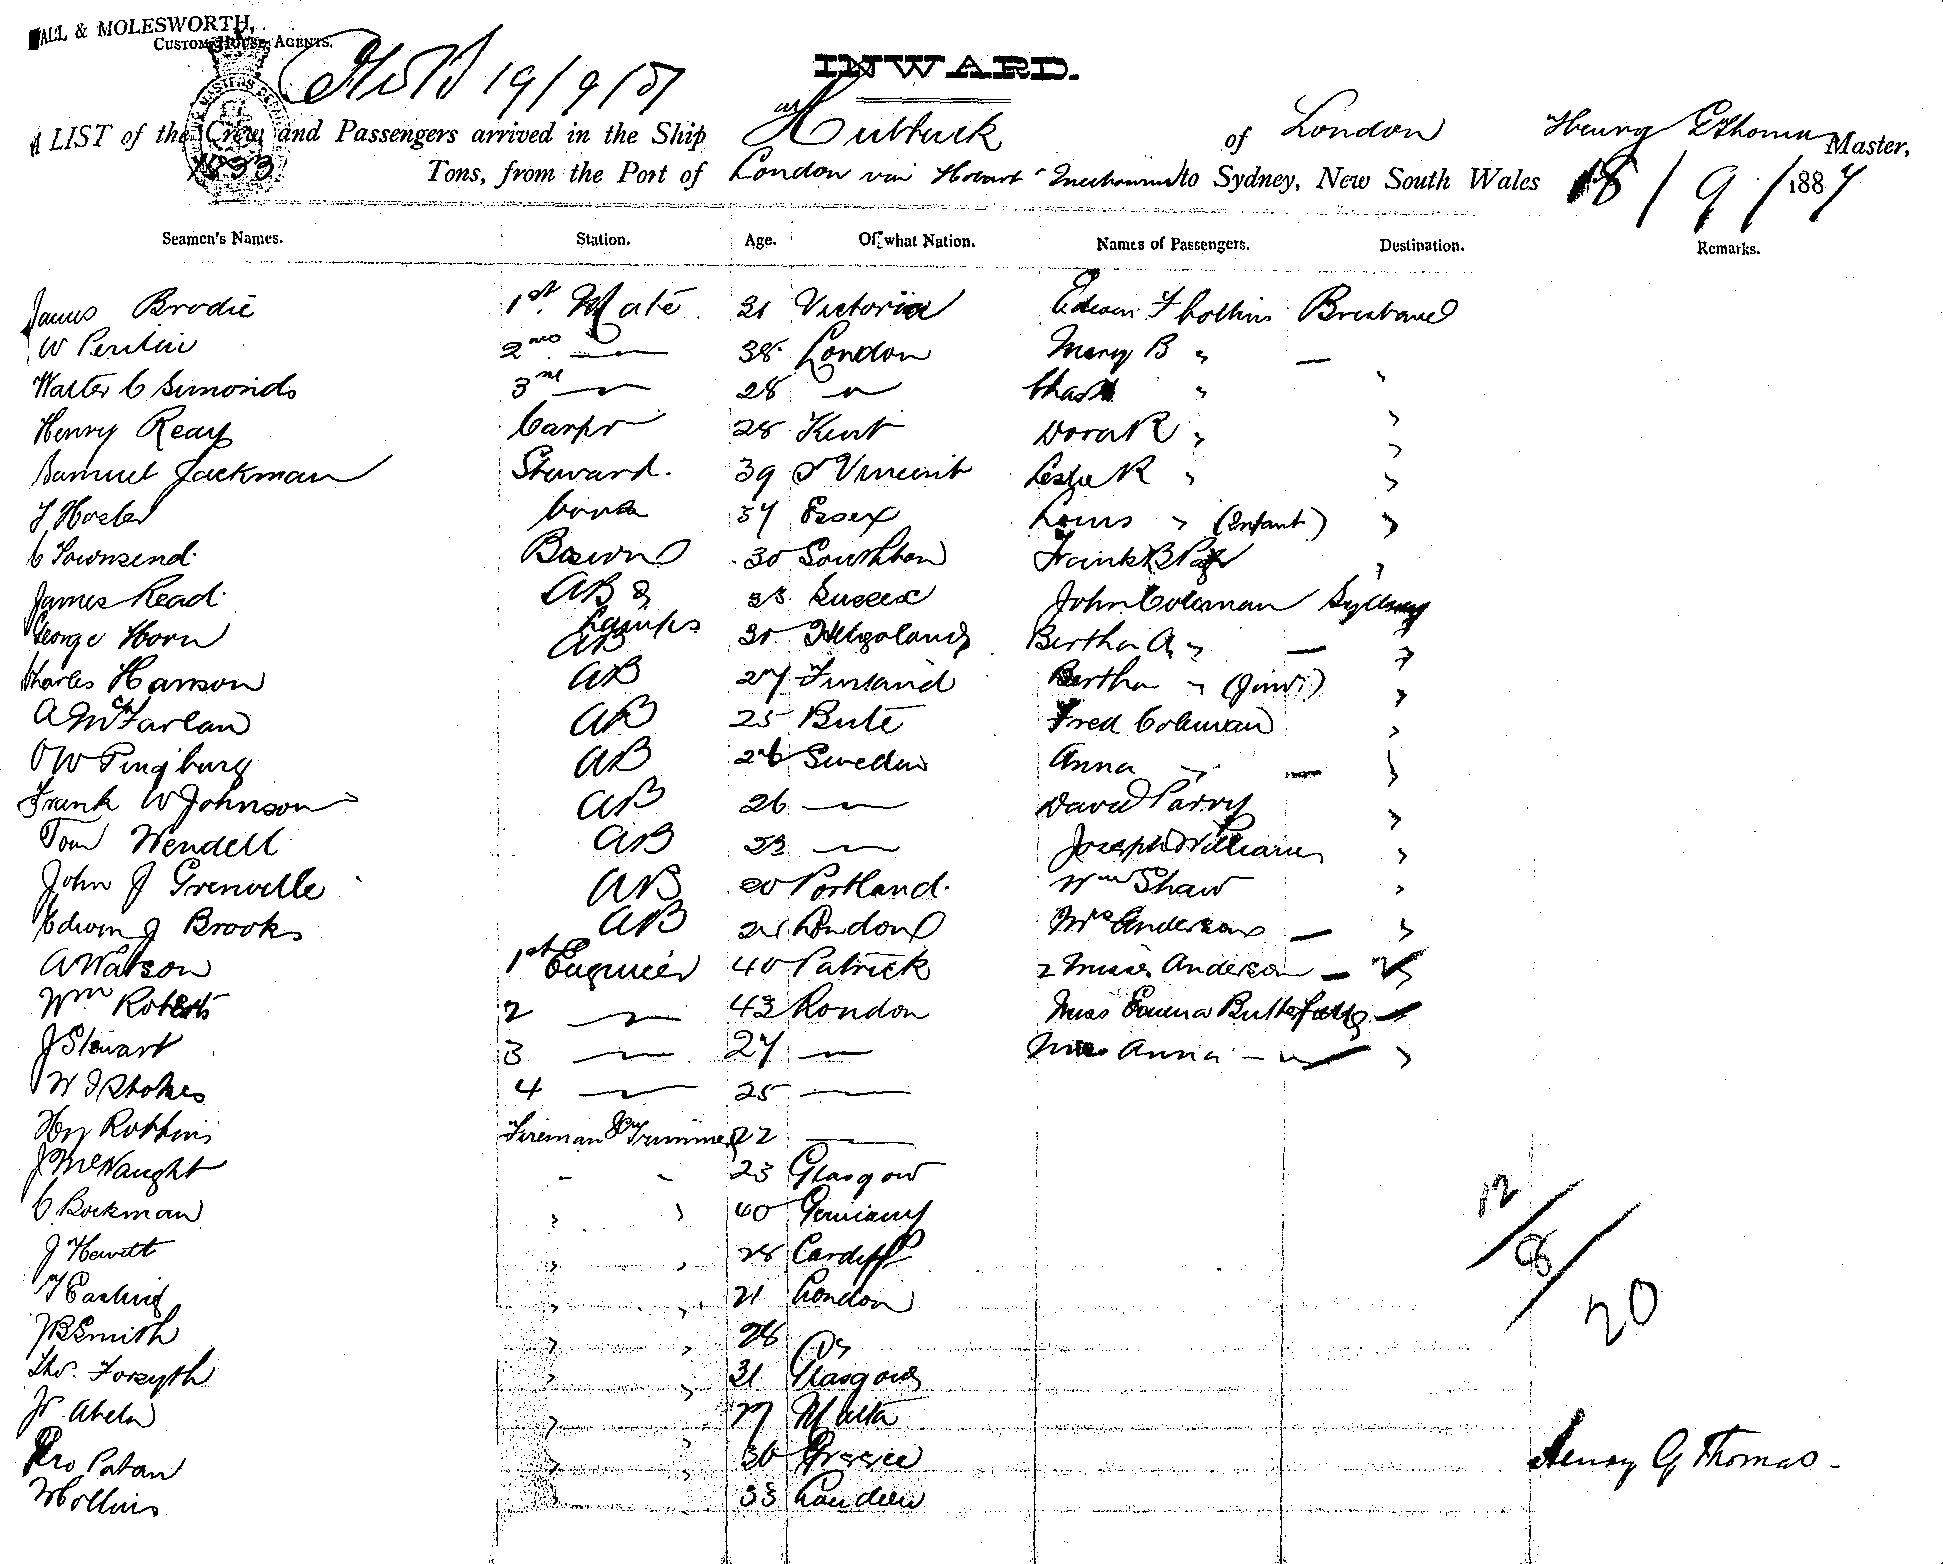 HALL & MOLESWORTH,
CUSTOM HOUSE AGENTS.
19/9/87
INWARD.
A LIST of the Crew and Passengers arrived in the Ship Hubbuck of London Henry G Thomas Master,
1833 Tons, from the Port of London via Hobart & Melbourne to Sydney, New South Wales 18/9/1887
Seamen's Names. Station. Age. Of what Nation. Names of Passengers. Destination. Remarks.
James Brodie 1st. Mate 31 Victoria Edwin F Collins Brisbane
W 2nd — 38 London Mary B " — "
Walter C Simonds 3rd — 28 " Chas " "
Henry Reay Carpr 28 Kent Dora R " "
Samuel Jackman Steward. 39 St Vincent Leslie R " "
F Hosler Cook 37 Essex Louis " (Infant) "
C Townsend Boswn 30 Southton Frank B "
James Read AB & Lamps 33 Sussex John Coleman Sydney
George Horn AB 30 Heligoland Bertha A " — "
Charles Hanson AB 27 Finland Bertha " (Junr) "
A McFarlan AB 25 Bute Fred Coleman "
AB 26 Sweden Anna " — "
Frank W Johnson AB 26 — David Parry "
Tom Wendell AB 23 — Joseph Williams "
John J Grenville AB 20 Portland. Wm Shaw "
Edwin J Brooks AB 21 London Mrs Anderson — "
A Watson 1st Engineer 40 Patrick 2 Misses Anderson — "
Wm Roberts 2 — 43 London Miss Emma —
J Stewart 3 — 27 — Miss Anna — " "
W J Stokes 4 — 25 —
Hy Robbins Fireman & Trimmer 22 —
J McNaught " " 23 Glasgow
C Bockman " " 40 Germany
J Hewitt " " 28 Cardiff
" " 21 London
J B Smith " " 28 "
Thos. Forsyth " " 31 Glasgow
Jr Abela " " 27 Malta
" " 30 Greece
W Collins " 33 London
12/8/20
Henry G Thomas